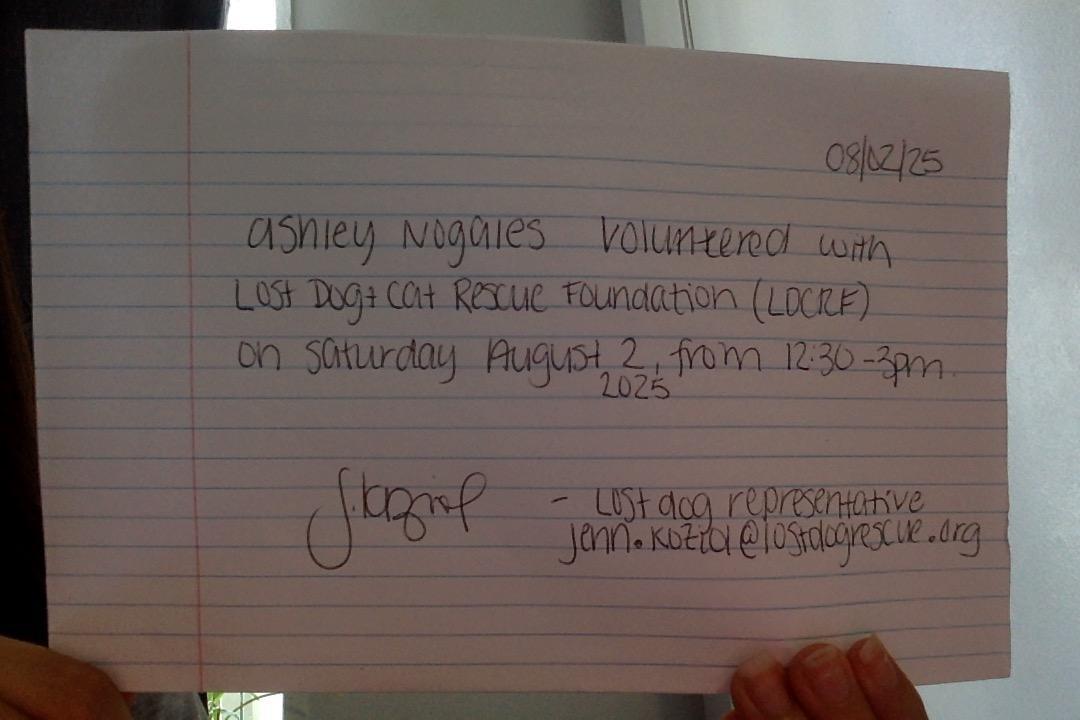 08/02/25
Ashley Nogales volunteered with
Lost Dog + Cat Rescue Foundation (LDCRF)
on Saturday August 2, from 12:30-3pm
2025
J. Koziol - Lost dog representative
jenn.koziol@lostdogrescue.org